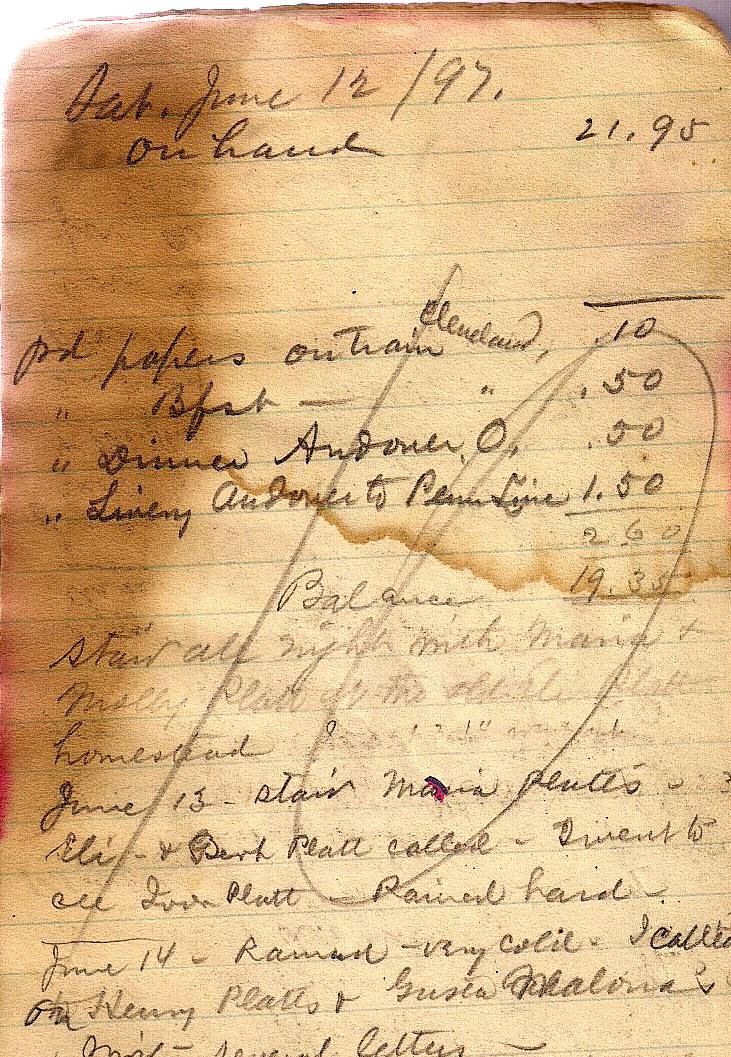 Sat. June 12 /97.
on hand 21.95
pd papers on train Cleveland, .10
" Bfst — " .50
" Dinner Andover, O. .50
" Livery Andover to Penn Line 1.50
2 60
Balance 19.35
staid all night with Maria &
Molly Platt at the old Eli Platt
homestead
June 13 - staid Maria Platts -
Eli - & Bert Platt called - I went to
see Platt - Rained hard -
June 14 - Rained - very cold - I called
on Henry Platts &
several letters -